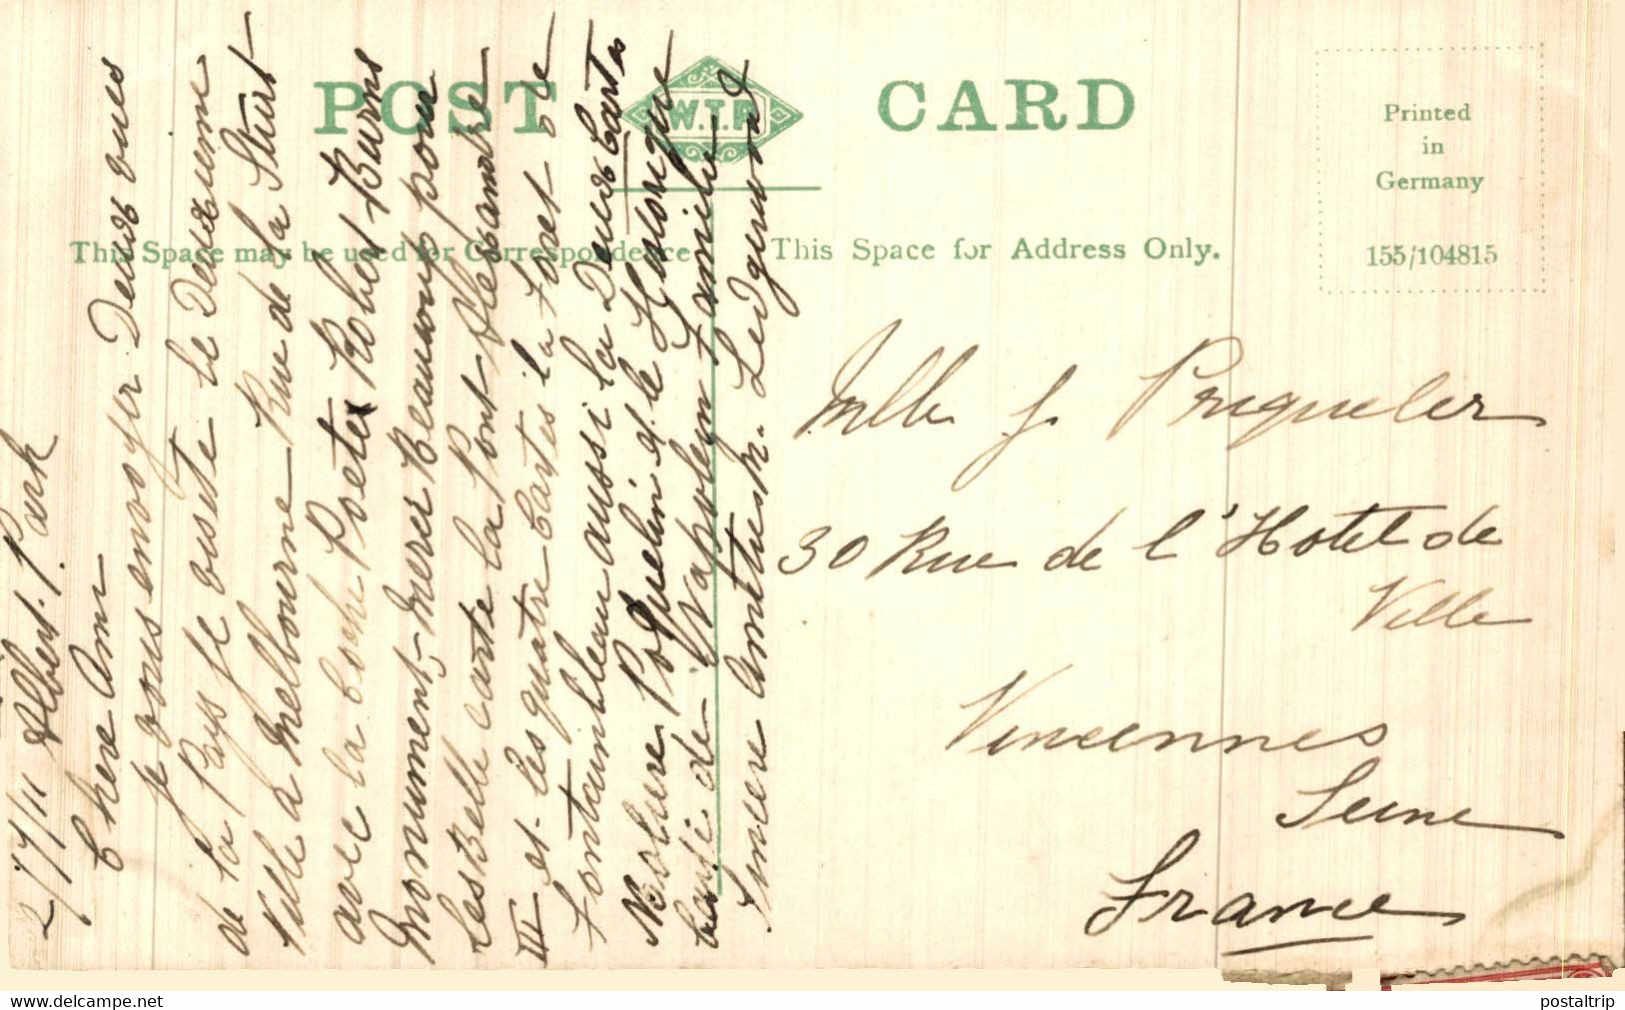 POST CARD
W.T.P.
Printed
in
Germany
155/104815
This Space may be used for Correspondence
This Space for Address Only.
2/7/11 Albert. Park
Chere Ami
Je vous envoyer Deux vues
de la Pays Je visite le Deuxieme
Ville a Melbourne - Rue de la Sturt
avec la Poete Robert Burns
Monument, Merci Beaucoup pour
les Belle carte la Pont Alexandre
III et. les quatre Cartes il a Foret de
Fontainbleau aussi la Deux Cartes
Moliere Poquelin et le Historique
carte de Napoleon Famile
Sincere Amitues M. Ledgerwood
Mlle J. Pruqueler
30 Rue de l'Hotel de
Ville
Vincennes
Seine
France
postaltrip